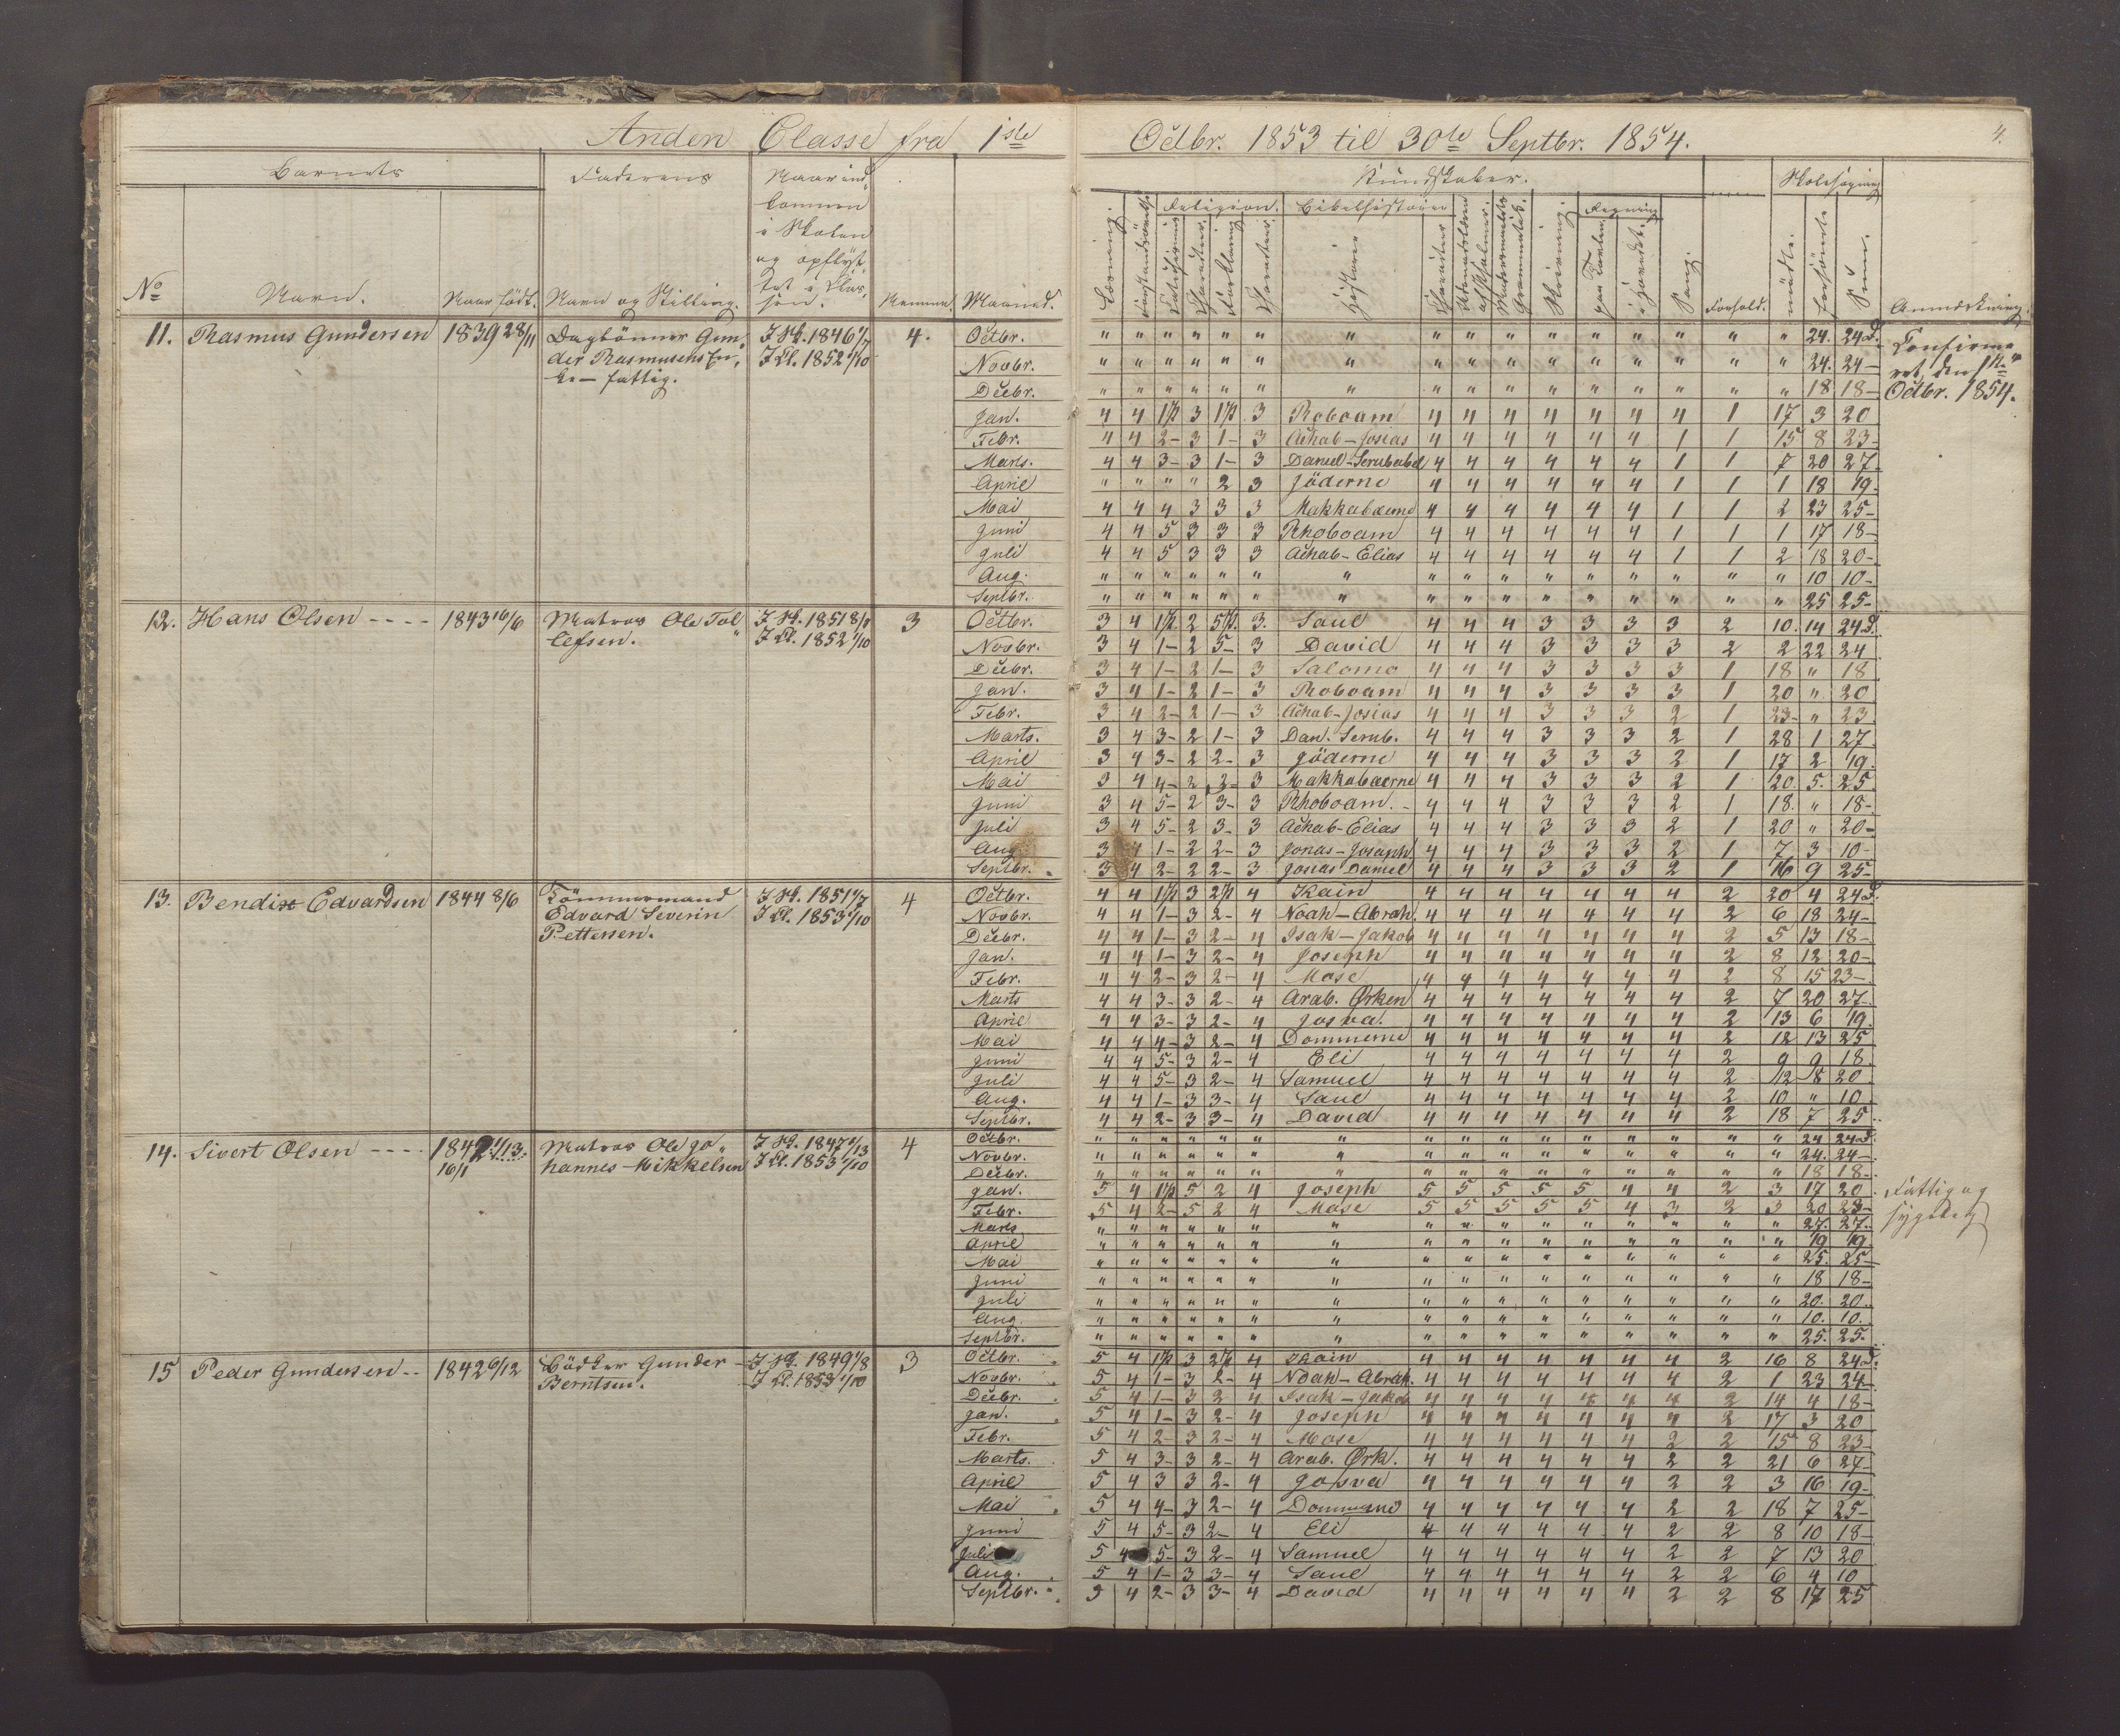 Anden Classe fra 1ste Octbr. 1853 til 30te Septbr. 1854.
4.
Barnets Faderens Naar ind- Kundskaber. Skolesøgning
kommen Religion. Bibelhistorie Regning
i Skolen
og opflyt-
tet i Clas-
No Navn. Naar født. Navn og Stilling. sen. Nemme. Maaned. Læsning. Historie Skrivning. paa Tavlen i Hovedet. Sang. Forhold. mødte. forsømte Sum. Anmærkning.
11. Rasmus Gundersen 1839 28/11 Daglønner Gun- I Sk. 1846 1/7 4. Octbr. " " " " " " " " " " " " " " " " 24. 24 D. Confirme-
der Rasmusens En- I Cl. 1852 1/10 Novbr. " " " " " " " " " " " " " " " " 24. 24 – ret den 1ste
ke – fattig. Decbr. " " " " " " " " " " " " " " " " 18 18 – Octbr. 1854.
Jan. 4 4 1½ 3 1½ 3 Roboam 4 4 4 4 4 4 4 1 17 3 20
Febr. 4 4 2– 3 1– 3 Achab – Josias 4 4 4 4 4 4 1 1 15 8 23–
Marts. 4 4 3– 3 1– 3 Daniel – Serubabel 4 4 4 4 4 4 1 1 7 20 27–
April " " " " 2 3 Jöderne 4 4 4 4 4 4 1 1 1 18 19–
Mai 4 4 4 3 3 3 Makkabæerne 4 4 4 4 4 4 1 1 2 23 25–
Juni 4 4 5 3 3 3 Rhoboam 4 4 4 4 4 4 1 1 1 17 18–
Juli 4 4 5 3 3 3 Achab – Elias 4 4 4 4 4 4 1 1 2 18 20–
Aug. " " " " " " " " " " " " " " " " 10 10–
Septbr. " " " " " " " " " " " " " " " " 25 25–
12. Hans Olsen - - - - 1843 16/6 Matros Ole Tol- I Sk. 1851 8/1 3 Octbr. 3 4 1½ 2 5½ 3. Saul 4 4 4 3 3 3 3 2 10. 14 24 D.
lefsen. I Cl. 1852 1/10 Novbr. 3 4 1– 2 5– 3 David 4 4 4 3 3 3 3 2 2 22 24
Decbr. 3 4 1– 2 1– 3 Salomo 4 4 4 3 3 3 3 1 18 " 18
Jan. 3 4 1– 2 1– 3 Roboam 4 4 4 3 3 3 3 1 20 " 20
Febr. 3 4 2– 2 1– 3 Achab – Josias 4 4 4 3 3 3 2 1 23– " 23
Marts. 3 4 3– 2 1– 3 Dan. Serub. 4 4 4 3 3 3 2 1 28 1 27
April 3 4 3– 2 2– 3 Jöderne 4 4 4 3 3 3 2 1 17 2 19.
Mai 3 4 4– 2 2– 3 Makkabæerne 4 4 4 3 3 3 2 1 20. 5. 25
Juni 3 4 5– 2 3– 3 Rhoboam. 4 4 4 3 3 3 2 1 18. " 18–
Juli 3 4 5– 2 3– 3 Achab – Elias 4 4 4 3 3 3 2 1 20 " 20–
Aug. 3 4 1– 2 2– 3 Jonas – Josaph 4 4 4 3 3 3 2 1 7 3 10–
Septbr. 3 4 2– 2 2– 3 Jonas Daniel 4 4 4 3 3 3 2 1 16 9 25–
13. Bendix Edvardsen 1844 8/6 Tömmermand I Sk. 1851 1/7 4 Octbr. 4 4 1½ 3 2½ 4 Kain 4 4 4 4 4 4 4 2 20 4 24 D.
Edvard Severin I Cl. 1853 1/10 Novbr. 4 4 1– 3 2– 4 Noah – Abrah. 4 4 4 4 4 4 4 2 6 18 24–
Pettersen. Decbr. 4 4 1– 3 2– 4 Isak – Jakob 4 4 4 4 4 4 4 2 5 13 18–
Jan. 4 4 1– 3 2– 4 Joseph 4 4 4 4 4 4 4 2 8 12 20–
Febr. 4 4 2– 3 2– 4 Mose 4 4 4 4 4 4 4 2 8 15 23–
Marts 4 4 3– 3 2– 4 Arab. Ørken 4 4 4 4 4 4 4 2 7 20 27–
April 4 4 3– 3 2– 4 Josva. 4 4 4 4 4 4 4 2 13 6 19.
Mai 4 4 4– 3 2– 4 Dommerne 4 4 4 4 4 4 4 2 12 13 25
Juni 4 4 5– 3 2– 4 Eli 4 4 4 4 4 4 4 2 9 9 18
Juli 4 4 5– 3 2– 4 Samuel 4 4 4 4 4 4 4 2 12 8 20
Aug. 4 4 1– 3 3– 4 Saul 4 4 4 4 4 4 4 2 10 " 10
Septbr. 4 4 2– 3 3– 4 David 4 4 4 4 4 4 4 2 18 7 25
14. Sivert Olsen - - - - 1842 1/13. Matros Ole Jo- I Sk. 1847 1/13 4 Octbr. " " " " " " " " " " " " " " " " 24 24 D.
16/1 hannes Mikkelsen I Cl. 1853 1/10 Novbr. " " " " " " " " " " " " " " " " 24. 24–
Decbr. " " " " " " " " " " " " " " " " 18 18–
Jan. 5 4 1½ 5 2 4 Joseph 5 5 5 5 5 4 4 2 3 17 20 Fattig og
Febr. 5 4 2– 5 2 4 Mose 5 5 5 5 5 4 3 2 3 20 23–
Marts " " " " " " " " " " " " " " " " 27. 27.
April " " " " " " " " " " " " " " " " 19 19
Mai " " " " " " " " " " " " " " " " 25. 25–
Juni " " " " " " " " " " " " " " " " 18 18–
Juli " " " " " " " " " " " " " " " " 20. 20.
Aug. " " " " " " " " " " " " " " " " 10. 10.
Septbr. " " " " " " " " " " " " " " " " 25. 25.
15 Peder Gundersen - - 1842 6/12 Bödker Gunder I Sk. 1849 1/8 3 Octbr. 5 4 1½ 3 2½ 4 Kain 4 4 4 4 4 4 4 2 16 8 24 D.
Berntsen. I Cl. 1853 1/10 Novbr. 5 4 1– 3 2– 4 Noah – Abrah. 4 4 4 4 4 4 4 2 1 23 24–
Decbr. 5 4 1– 3 2 4 Isak – Jakob 4 4 4 4 4 4 4 2 14 4 18–
Jan. 5 4 1– 3 2– 4 Joseph 4 4 4 4 4 4 4 2 17 3 20
Febr. 5 4 2– 3 2– 4 Mose 4 4 4 4 4 4 2 2 15 8 23
Marts. 5 4 3– 3 2– 4 Arab. Ørk. 4 4 4 4 4 4 2 2 21 6 27–
April 5 4 3 3 2– 4 Josva 4 4 4 4 4 4 2 2 3 16 19–
Mai 5 4 4– 3 2– 4 Dommerne 4 4 4 4 4 4 2 2 18 7 25–
Juni 5 4 5– 3 2– 4 Eli 4 4 4 4 4 4 2 2 8 10 18–
Juli 5 4 5– 3 2– 4 Samuel 4 4 4 4 4 4 2 2 7 13 20
Aug. 5 4 1– 3 3– 4 Saul 4 4 4 4 4 4 2 2 6 4 10
Septbr. 5 4 2– 3 3– 4 David 4 4 4 4 4 4 2 2 8 17 25